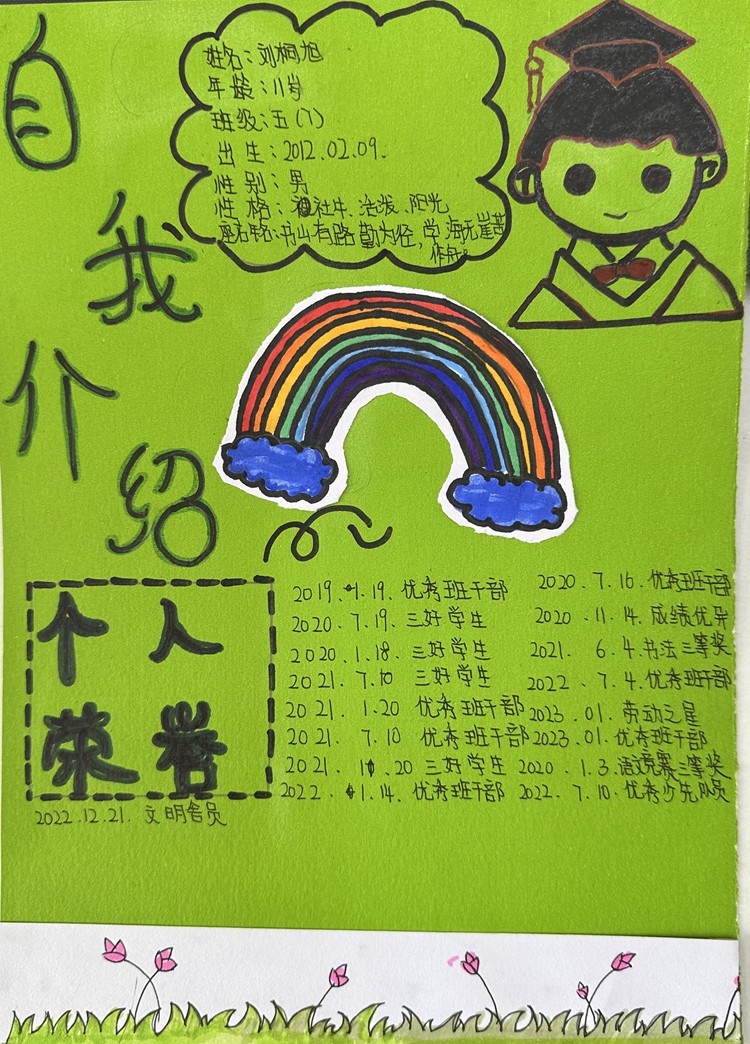 自我介绍
姓名：刘桐旭
年龄：11岁
班级：五（7）
出生：2012.02.09.
性别：男
性格：社牛、活泼、阳光
座右铭：书山有路勤为径，学海无崖苦
作舟。
个人
荣誉
2019.1.19.优秀班干部
2020.7.19.三好学生
2020.1.18.三好学生
2021.7.10 三好学生
2021.1.20 优秀班干部
2021.7.10 优秀班干部
2021.11.20 三好学生
2022.1.14.优秀班干部
2020.7.16.优秀班干部
2020.11.14.成绩优异
2021.6.4.书法三等奖
2022.7.4.优秀班干部
2023.01.劳动之星
2023.01.优秀班干部
2020.1.3.语竞赛三等奖
2022.7.10.优秀少先队员
2022.12.21.文明舍员